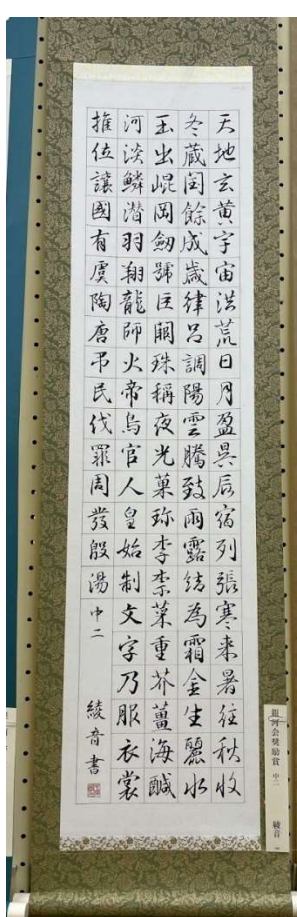 天地玄黄宇宙洪荒日月盈昃辰宿列張寒来暑往秋收
冬蔵閏餘成歳律呂調陽雲騰致雨露結為霜金生麗水
玉出崐岡劔號巨闕珠稱夜光菓珎李柰菜重芥薑海鹹
河淡鱗潜羽翔龍師火帝鳥官人皇始制文字乃服衣裳
推位讓國有虞陶唐弔民伐罪周發殷湯 中二 綾音書
銀河会奨励賞 中二
綾音